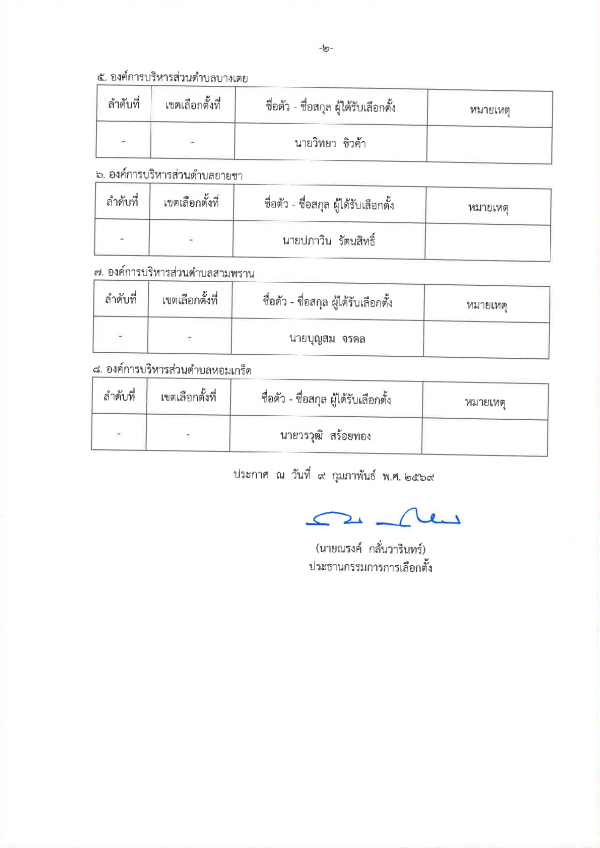 -๒-
๕. องค์การบริหารส่วนตำบลบางเตย
ลำดับที่ เขตเลือกตั้งที่ ชื่อตัว - ชื่อสกุล ผู้ได้รับเลือกตั้ง หมายเหตุ
- - นายวิทยา ชิวค้า
๖. องค์การบริหารส่วนตำบลยายชา
ลำดับที่ เขตเลือกตั้งที่ ชื่อตัว - ชื่อสกุล ผู้ได้รับเลือกตั้ง หมายเหตุ
- - นายปภาวิน รัตนสิทธิ์
๗. องค์การบริหารส่วนตำบลสามพราน
ลำดับที่ เขตเลือกตั้งที่ ชื่อตัว - ชื่อสกุล ผู้ได้รับเลือกตั้ง หมายเหตุ
- - นายบุญสม จรดล
๘. องค์การบริหารส่วนตำบลหอมเกร็ด
ลำดับที่ เขตเลือกตั้งที่ ชื่อตัว - ชื่อสกุล ผู้ได้รับเลือกตั้ง หมายเหตุ
- - นายวรวุฒิ สร้อยทอง
ประกาศ ณ วันที่ ๙ กุมภาพันธ์ พ.ศ. ๒๕๖๙
(นายณรงค์ กลั่นวารินทร์)
ประธานกรรมการการเลือกตั้ง